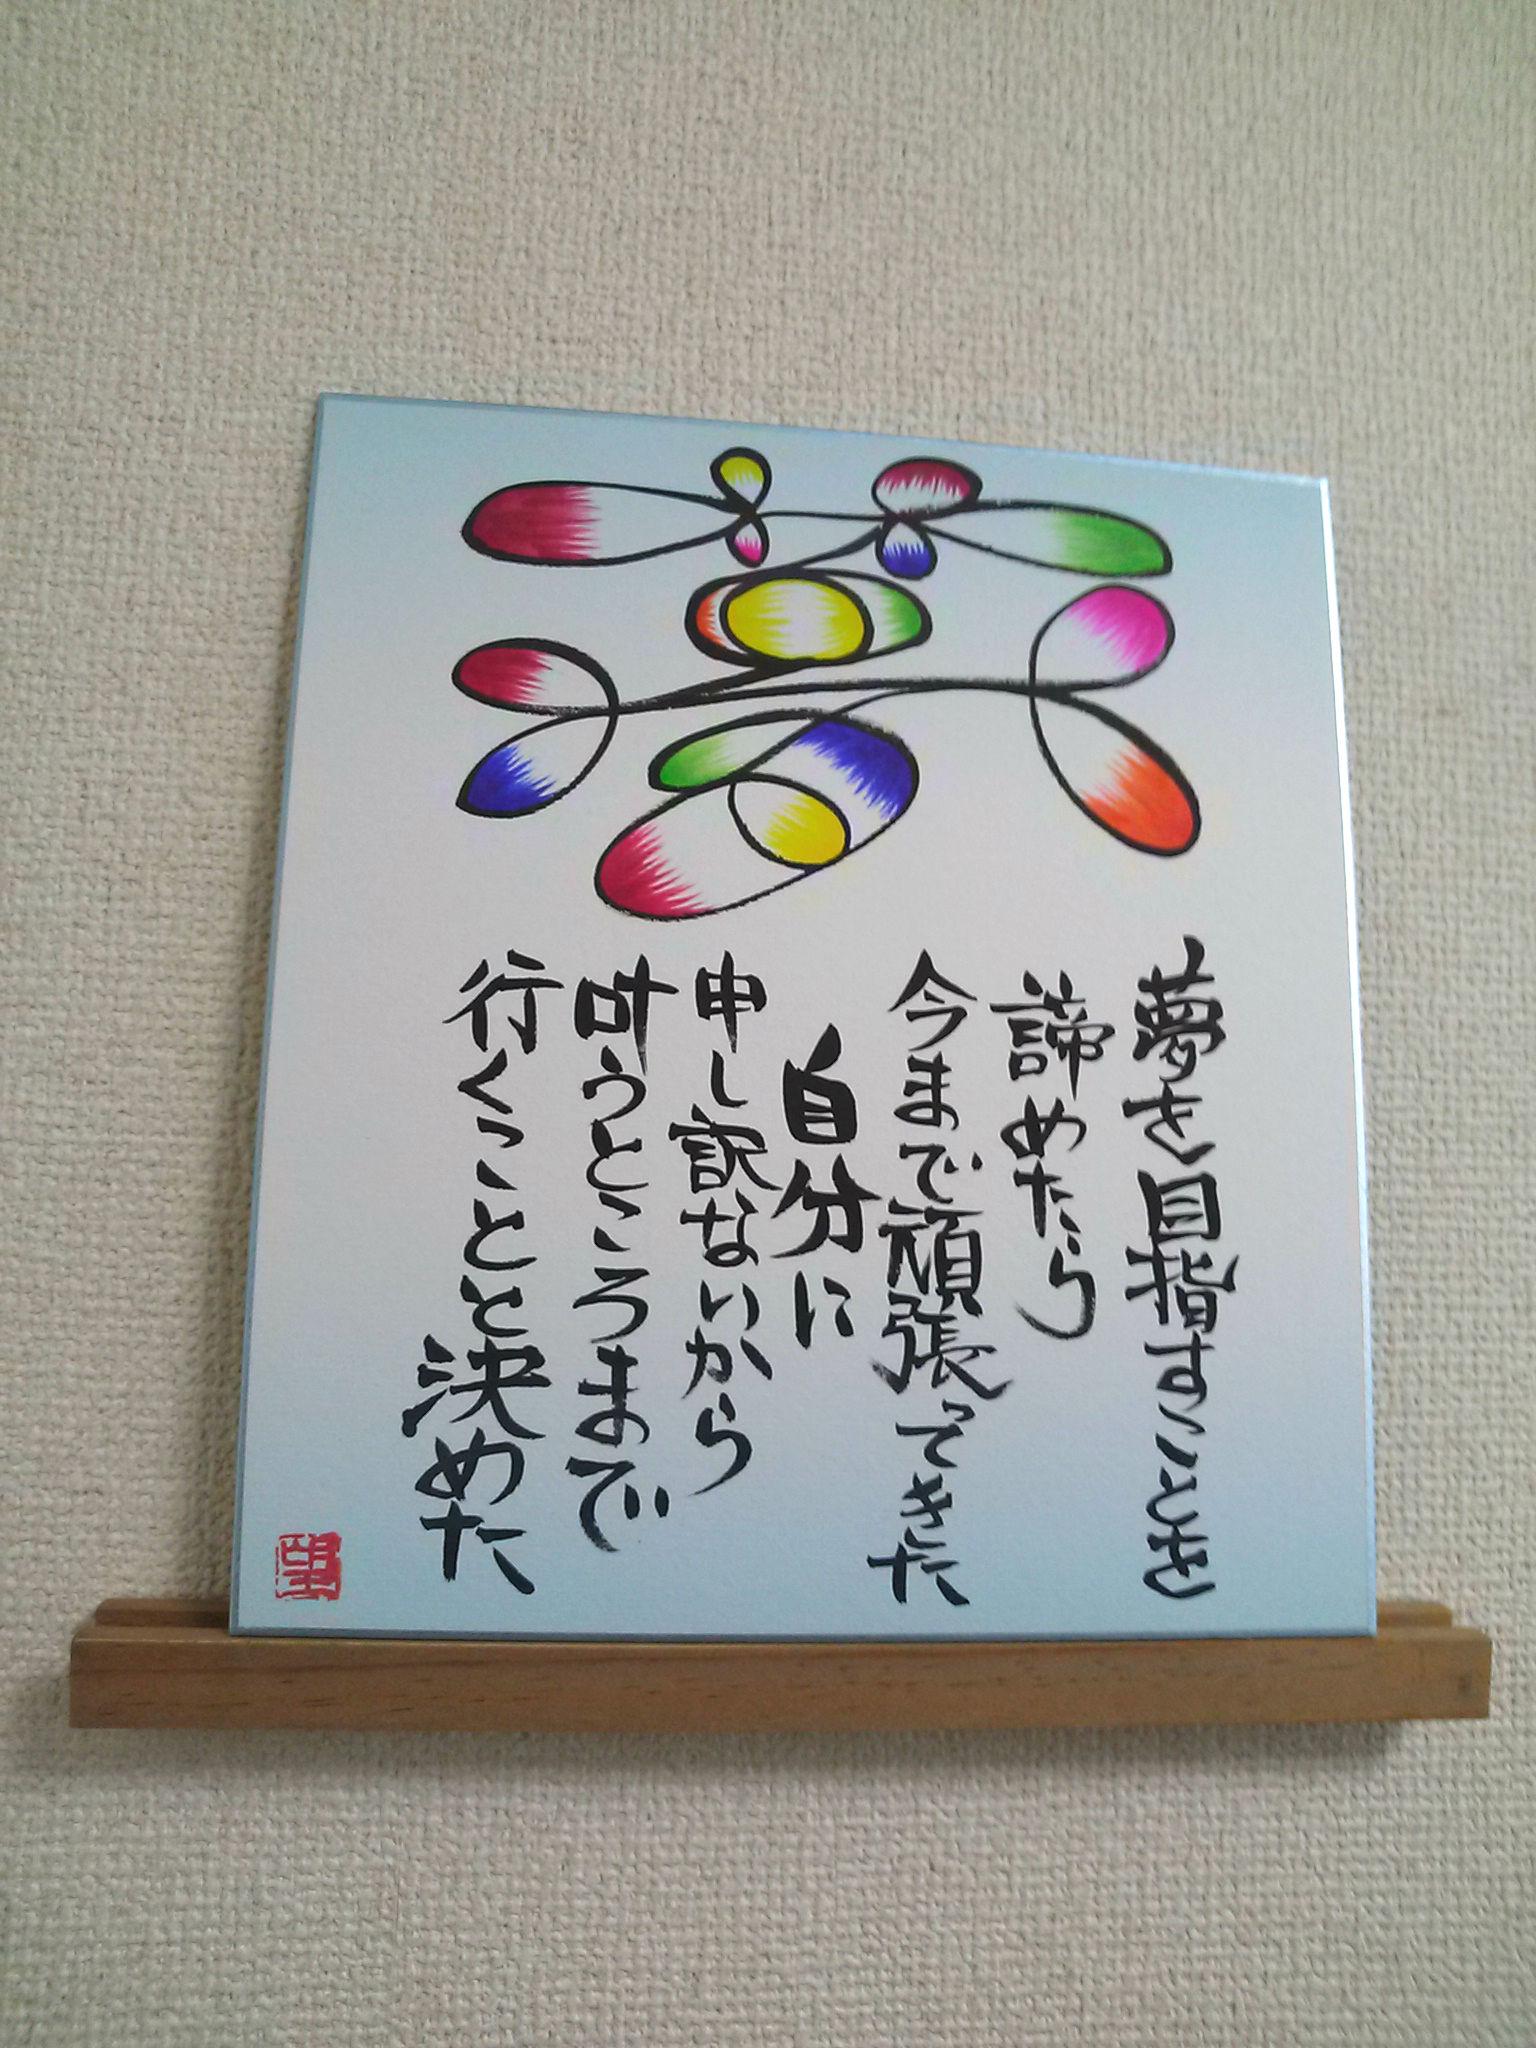 夢
夢を目指すことを
諦めたら
今まで頑張ってきた
自分に
申し訳ないから
叶うところまで
行くことと決めた
望